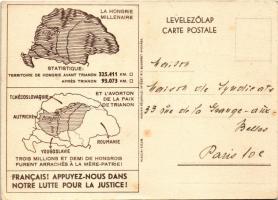 LA HONGRIE
MILLENAIRE
STATISTIQUE:
TERRITOIRE DE HONGRIE AVANT TRIANON 325.411 KM. □
APRÈS TRIANON 93.073 KM. □
TCHÉCOSLOVAQUIE
ET L'AVORTON
DE LA PAIX
DE TRIANON
AUTRICHE
ROUMANIE
YOUGOSLAVIE
TROIS MILLIONS ET DEMI DE HONGROIS
FURENT ARRACHÉS À LA MÈRE-PATRIE!
FRANÇAIS! APPUYEZ-NOUS DANS
NOTRE LUTTE POUR LA JUSTICE!
LEVELEZŐLAP
CARTE POSTALE
Maison
Maison de Syndicats
33 Rue de la Grange-aux-
Belles
Paris 10e